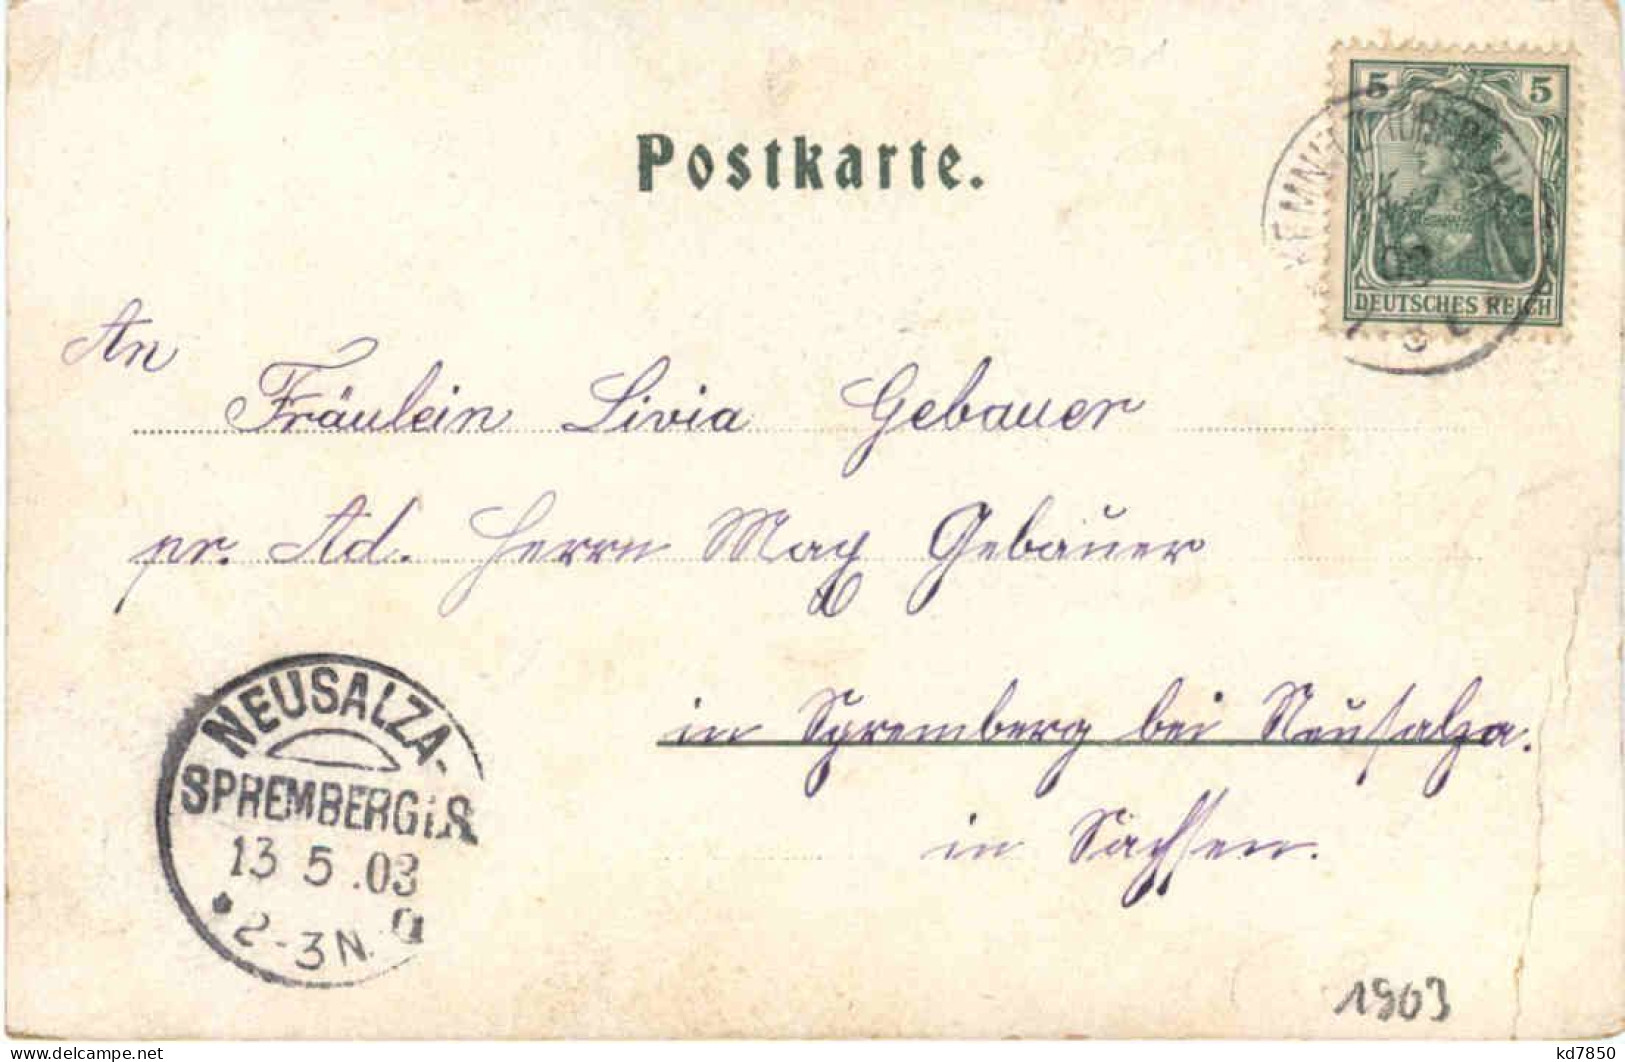 Postkarte.
5 5
DEUTSCHES REICH
03
An
Fräulein Livia Gebauer
pr. Ad. Herrn Max Gebauer
in Spremberg bei Neusalza.
in Sachsen.
NEUSALZA-
SPREMBERG i. S.
13 5 .03
2-3N.
1903
delcampe.net
kd7850